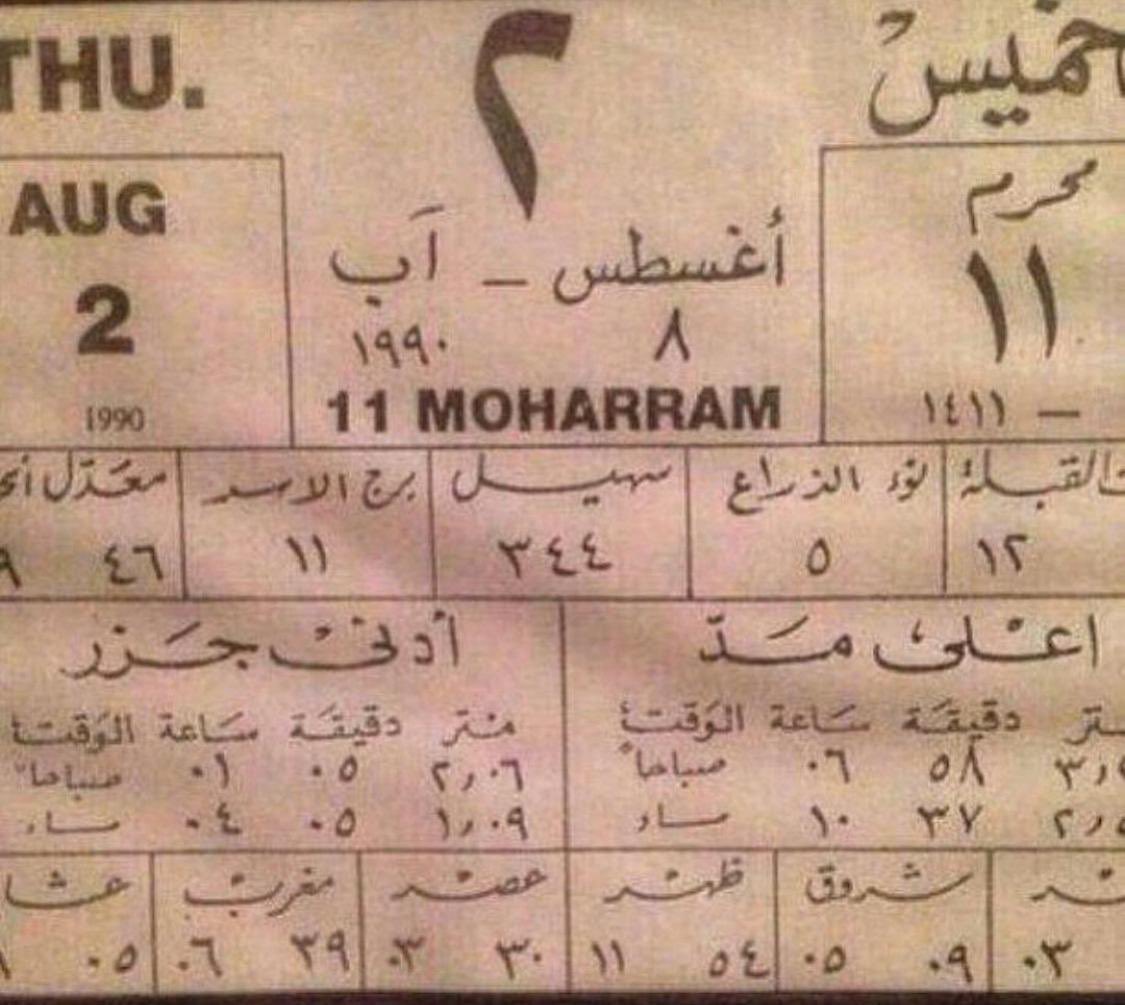 THU. ٢ خميس
AUG
2
1990
أغسطس – آب
٨ ١٩٩٠
11 MOHARRAM
محرم
١١
١٤١١ –
القبلة نوء الذراع سهيل برج الاسد معدل
١٢ ٥ ٣٤٤ ١١ ٤٦
اعلى مدّ أدنى جزر
دقيقة ساعة الوقت متر دقيقة ساعة الوقت
٥٨ ٠٦ صباحاً ٢,٠٦ ٠٥ ٠١ صباحاً
٣٧ ١٠ مساء ١,٠٩ ٠٥ ٠٤ مساء
شروق ظهر عصر مغرب عشا
٠٣ ٠٩ ٠٥ ٥٤ ١١ ٣٠ ٠٣ ٣٩ ٠٦ ٠٥